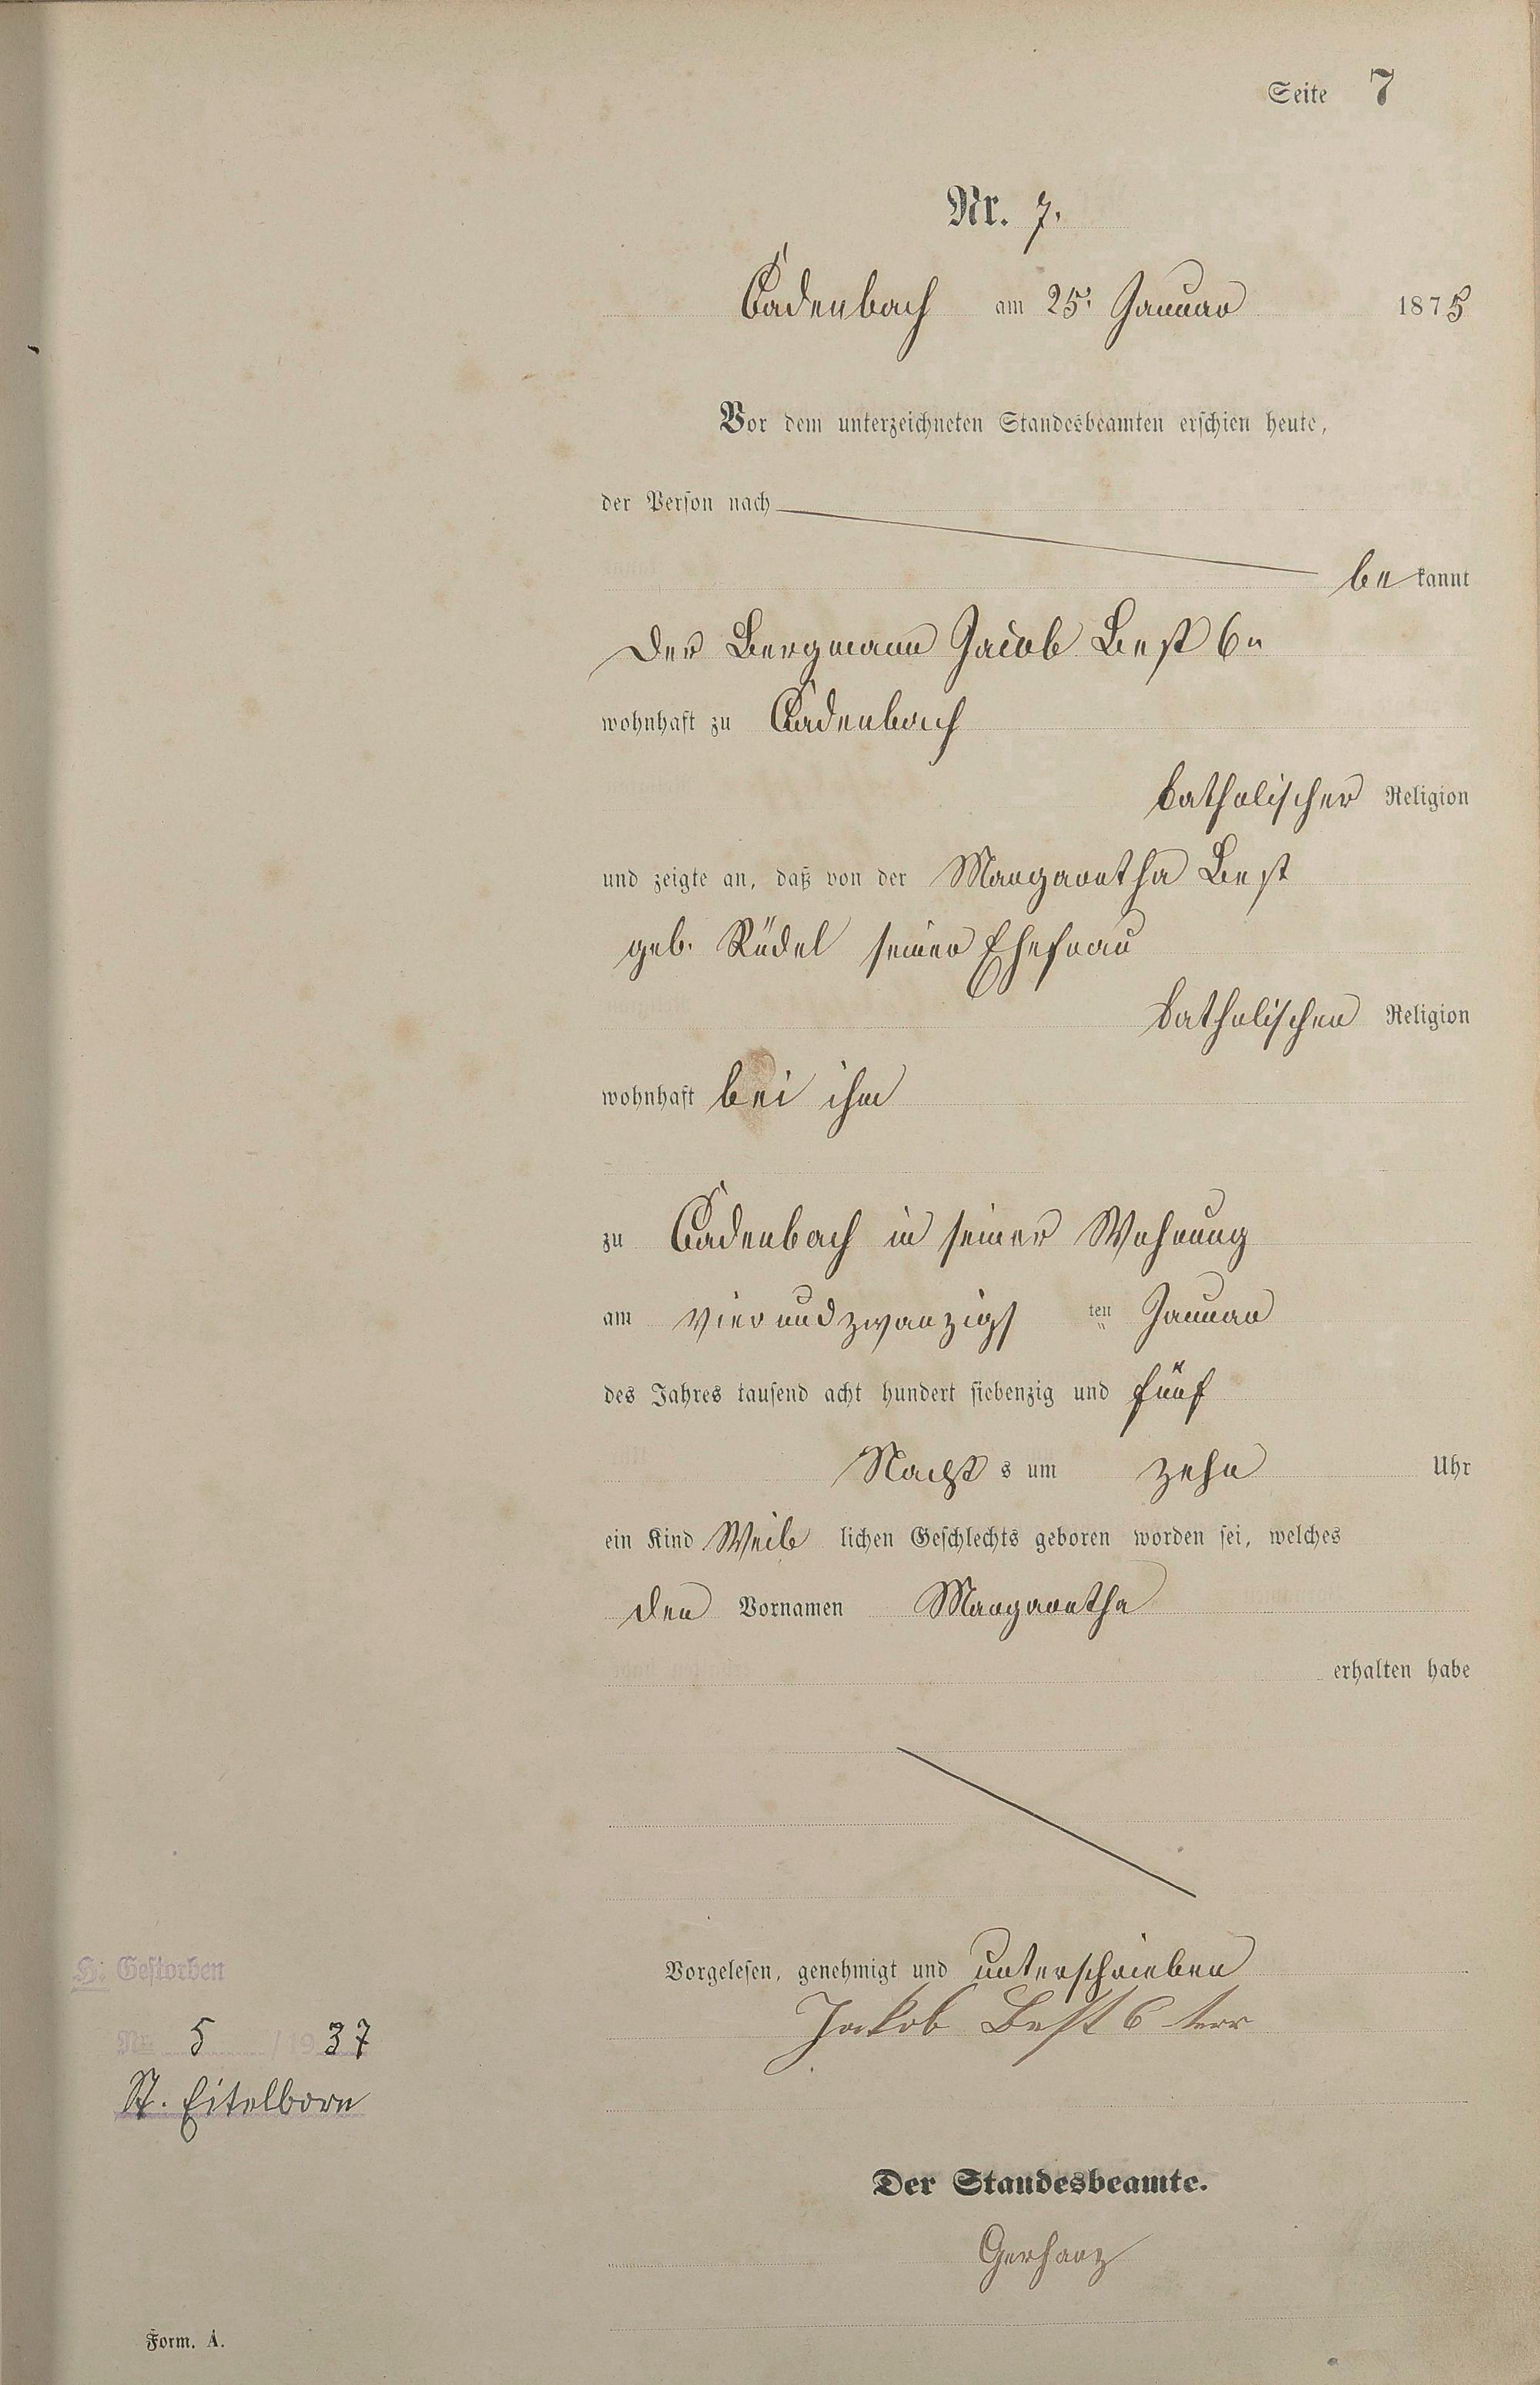 Seite 7
Nr. 7.
Cadenbach am 25. Januar 1875
Vor dem unterzeichneten Standesbeamten erschien heute,
der Person nach
bekannt
Der Bergmann Jacob Best 6r
wohnhaft zu Cadenbach
Catholischer Religion
und zeigte an, daß von der Margaretha Best
geb. Rüdel seiner Ehefrau
Catholischen Religion
wohnhaft bei ihm
zu Cadenbach in seiner Wohnung
am vierundzwanzigs ten Januar
des Jahres tausend acht hundert siebenzig und fünf
Nachts um zehn Uhr
ein Kind Weiblichen Geschlechts geboren worden sei, welches
den Vornamen Margaretha
erhalten habe
Vorgelesen, genehmigt und unterschrieben
Jakob Best 6 ter
H: Gestorben
Nr. 5 /1937
St. Eitelborn
Der Standesbeamte.
Gerharz
Form. A.